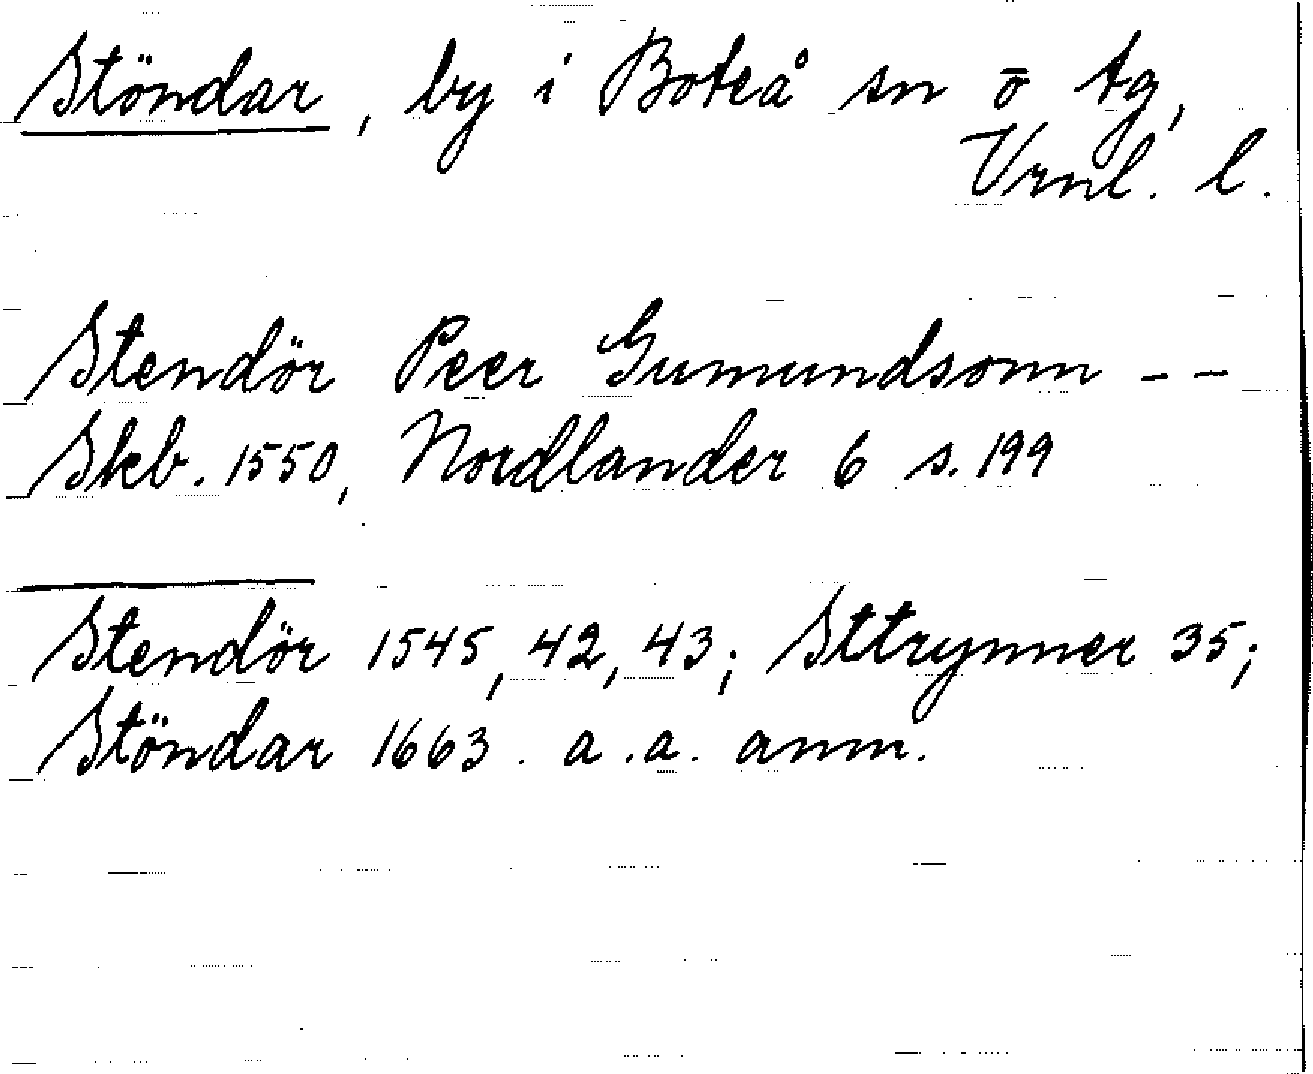 Stöndar, by i Boteå sn o tg,
Vrnl. l.
Stendör Peer Gumundsonn - -
Skb. 1550, Nordlander 6 s. 199
Stendör 1545, 42, 43; Sttrynner 35;
Stöndar 1663. a.a. anm.